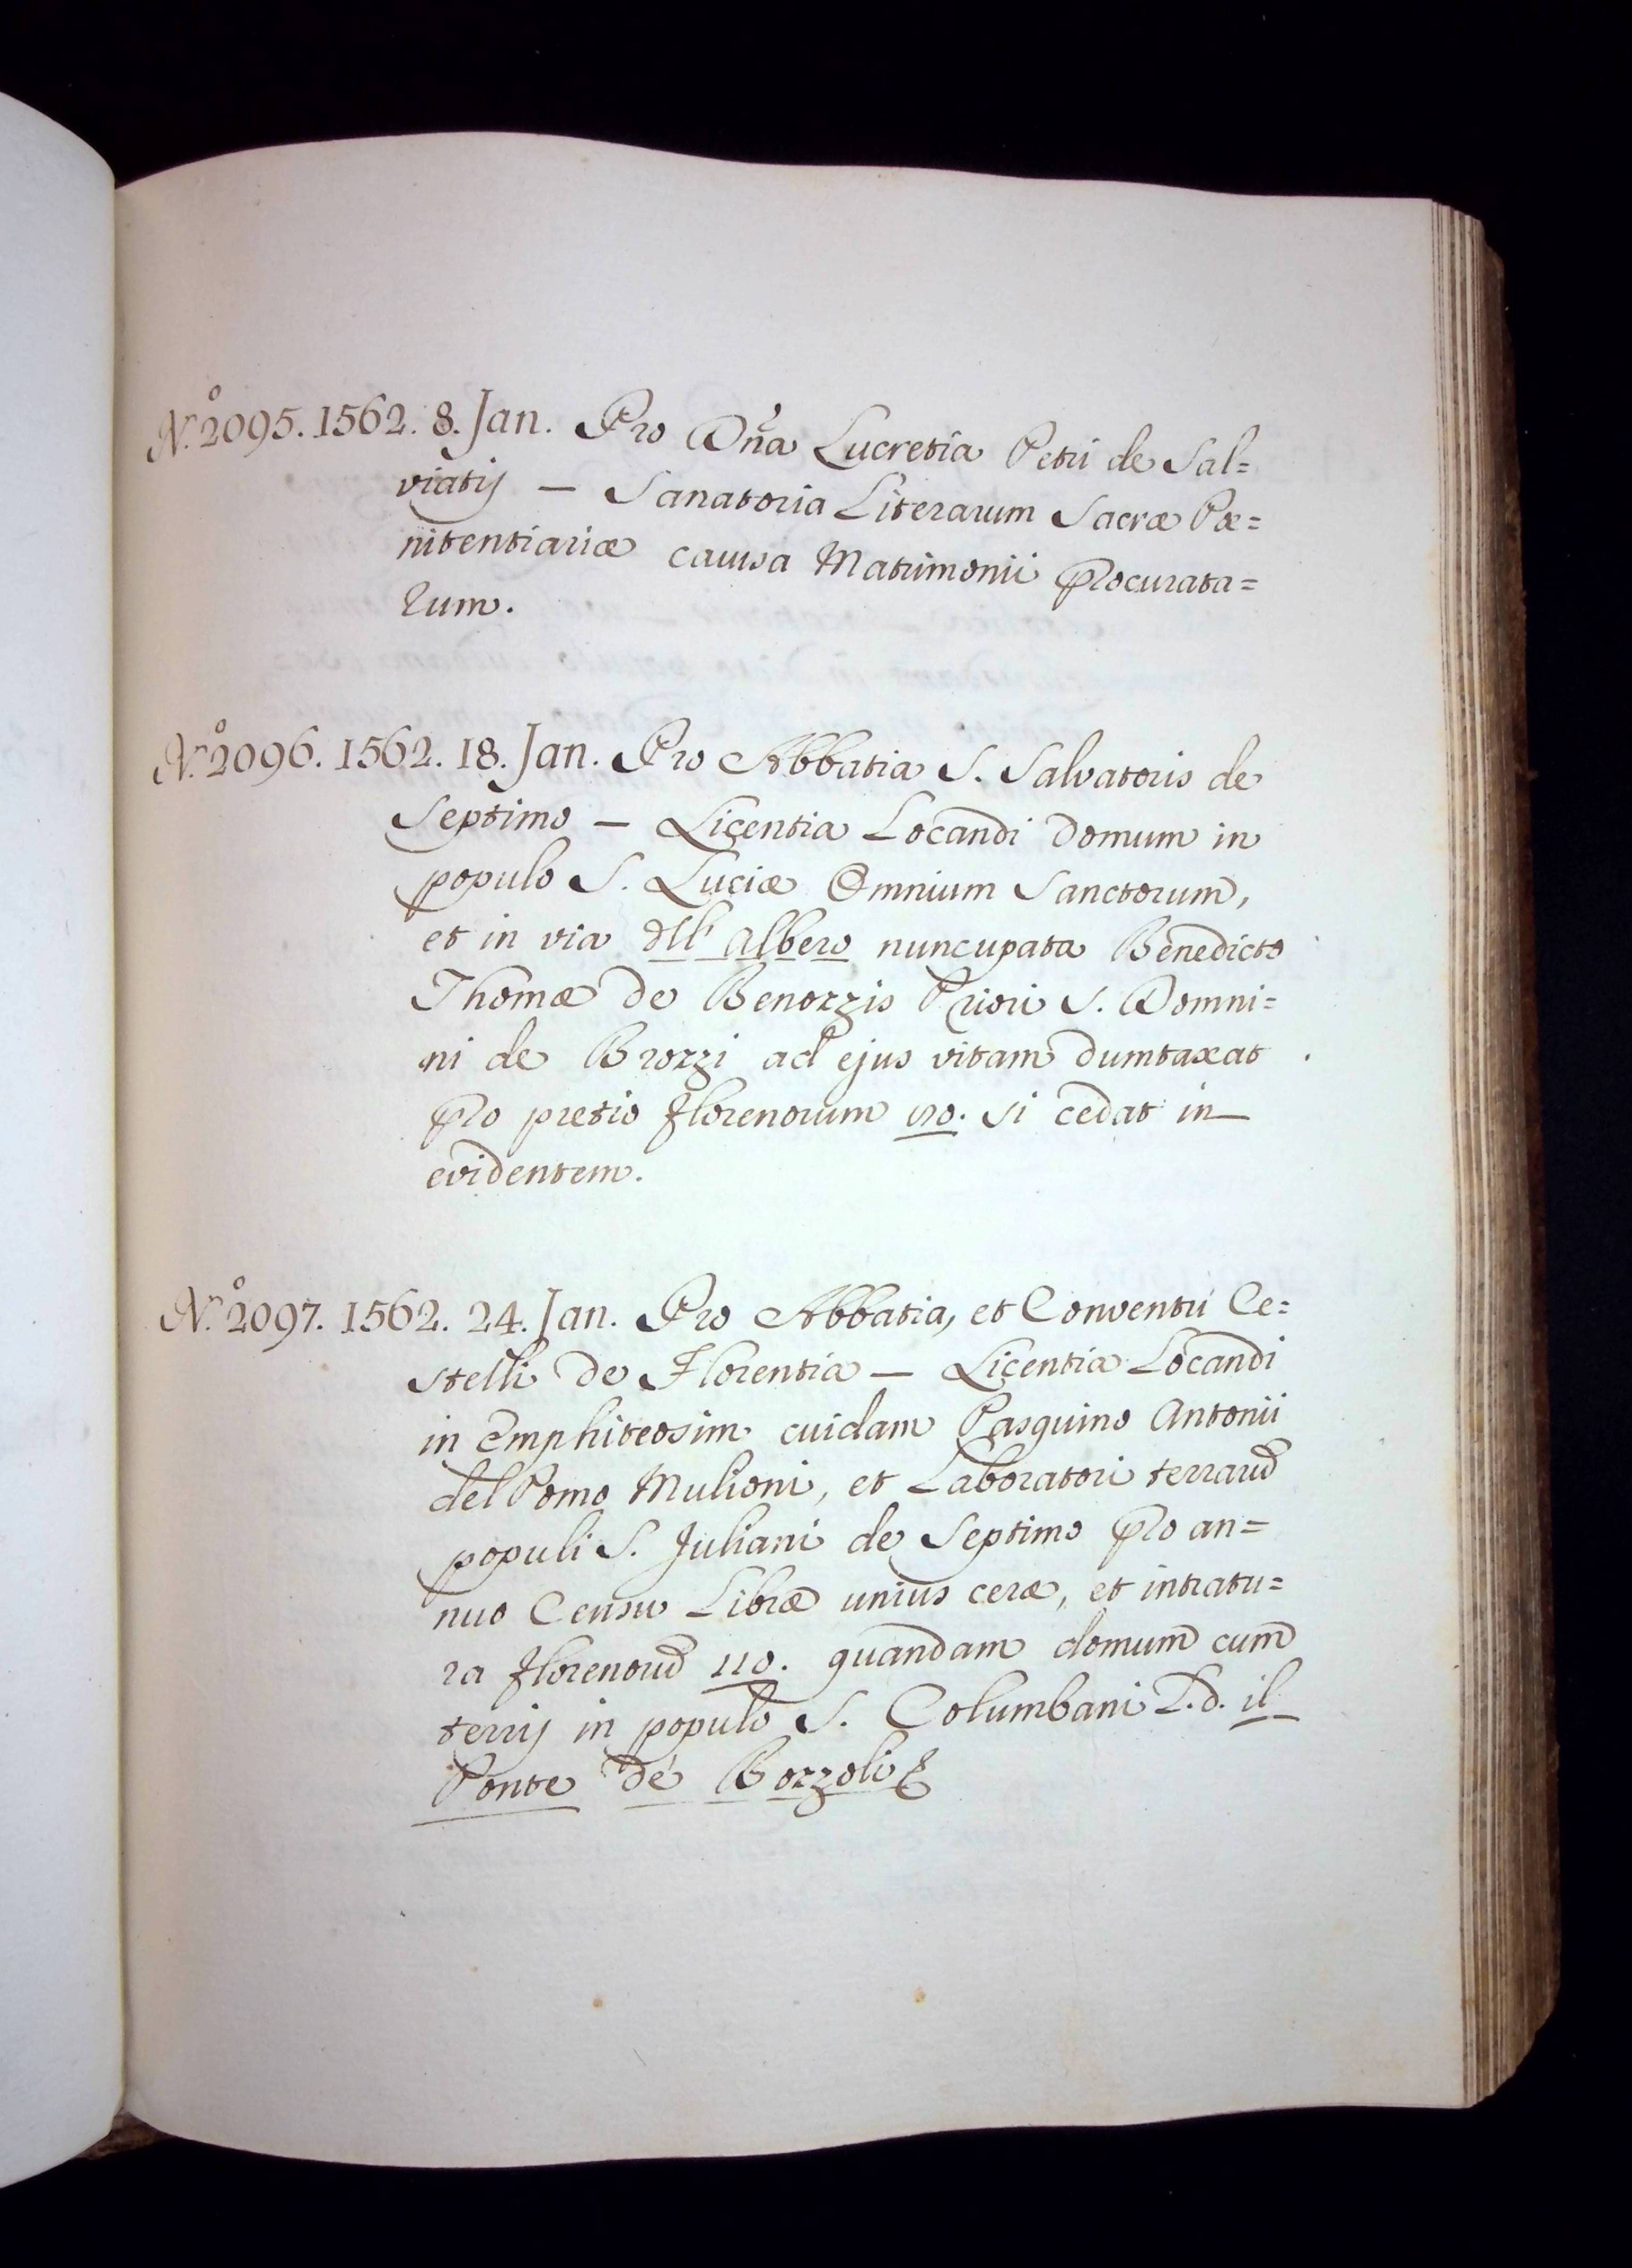 N.º 2095. 1562. 8. Jan. Pro Dña Lucretia Petri de Sal=
viatij — Sanatoria Literarum Sacræ Pæ=
nitentiariæ causa Matrimonii procurata=
rum.
N.º 2096. 1562. 18. Jan. Pro Abbatia S. Salvatoris de
Septimo — Licentia Locandi domum in
populo S. Luciæ Omnium Sanctorum,
et in via dll' albero nuncupata Benedicto
Thomæ de Benozzis Priori S. Domni=
ni de Brozzi ad ejus vitam dumtaxat
pro pretio florenorum si cedat in
evidentem.
N.º 2097. 1562. 24. Jan. Pro Abbatia, et Conventu Ce=
stelli de Florentia — Licentia Locandi
in Emphiteosim cuidam Pasquino Antonii
del Pomo Mulioni, et Laboratori terrarū
populi S. Juliani de Septimo pro an=
nuo Censu Libræ unius ceræ, et intratu=
ra florenorū 110. quandam domum cum
terrij in populo S. Columbani L.d. il
Ponte de' Bozzoli